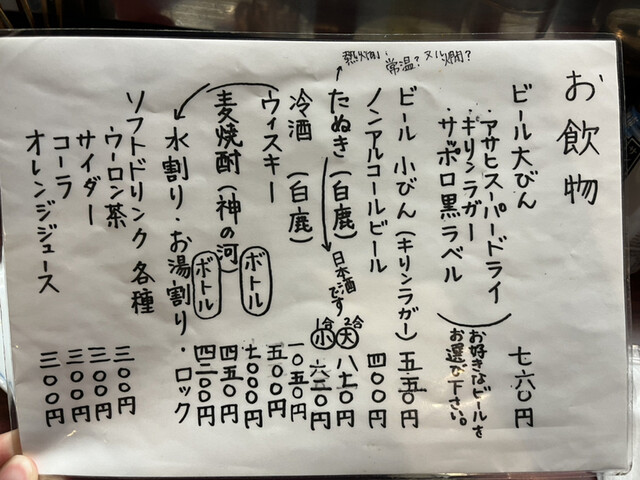 お飲物
ビール大びん 七六〇円
・アサヒスーパードライ
・キリンラガー
・サポロ黒ラベル
お好きなビールを
お選び下さい。
ビール 小びん(キリンラガー) 五五〇円
ノンアルコールビール 四〇〇円
熱燗? 常温? ヌル燗?
たぬき(白鹿)
日本酒です
2合 大
1合 小
冷酒(白鹿) 一〇五〇円
ウィスキー 五〇〇円
ボトル 七〇〇〇円
麦焼酎(神の河) 四五〇円
ボトル 四二〇〇円
水割り・お湯割り・ロック
ソフトドリンク 各種
ウーロン茶 三〇〇円
サイダー 三〇〇円
コーラ 三〇〇円
オレンジジュース 三〇〇円